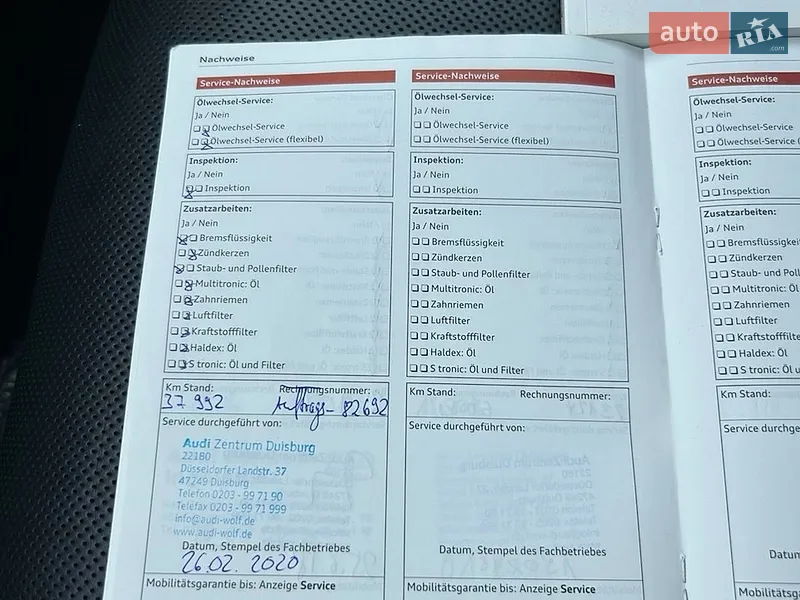 auto RIA .com
Nachweise
Service-Nachweise
Ölwechsel-Service:
Ja / Nein
Ölwechsel-Service
Ölwechsel-Service (flexibel)
Inspektion:
Ja / Nein
Inspektion
Zusatzarbeiten:
Ja / Nein
Bremsflüssigkeit
Zündkerzen
Staub- und Pollenfilter
Multitronic: Öl
Zahnriemen
Luftfilter
Kraftstofffilter
Haldex: Öl
S tronic: Öl und Filter
Km Stand: Rechnungsnummer:
37 992 Auftrags- 82692
Service durchgeführt von:
Audi Zentrum Duisburg
22180
Düsseldorfer Landstr. 37
47249 Duisburg
Telefon 0203 - 99 71 90
Telefax 0203 - 99 71 999
info@audi-wolf.de
www.audi-wolf.de
Datum, Stempel des Fachbetriebes
26.02. 2020
Mobilitätsgarantie bis: Anzeige Service
Service-Nachweise
Ölwechsel-Service:
Ja / Nein
Ölwechsel-Service
Ölwechsel-Service (flexibel)
Inspektion:
Ja / Nein
Inspektion
Zusatzarbeiten:
Ja / Nein
Bremsflüssigkeit
Zündkerzen
Staub- und Pollenfilter
Multitronic: Öl
Zahnriemen
Luftfilter
Kraftstofffilter
Haldex: Öl
S tronic: Öl und Filter
Km Stand: Rechnungsnummer:
Service durchgeführt von:
Datum, Stempel des Fachbetriebes
Mobilitätsgarantie bis: Anzeige Service
Service-Nachweise
Ölwechsel-Service:
Ja / Nein
Ölwechsel-Service
Ölwechsel-Service
Inspektion:
Ja / Nein
Inspektion
Zusatzarbeiten:
Ja / Nein
Bremsflüssigkeit
Zündkerzen
Staub- und Poll
Multitronic: Öl
Zahnriemen
Luftfilter
Kraftstofffilter
Haldex: Öl
S tronic: Öl u
Km Stand:
Service durchge
Datum
Mobilitätsgaran